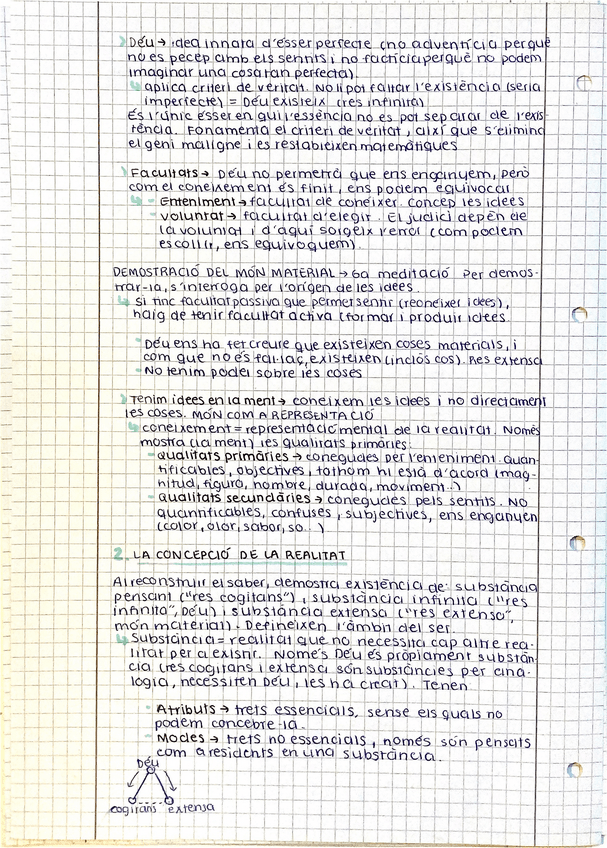 Déu → idea innata d'ésser perfecte (no adventícia perquè
no es pecep amb els sentits i no factícia perquè no podem
imaginar una cosa tan perfecta).
↳ aplica criteri de veritat. No li pot faltar l'existència (seria
imperfecte) = Déu existeix (res infinita)
És l'únic ésser en qui l'essència no es pot separar de l'exis-
tència. Fonamenta el criteri de veritat, així que s'elimina
el geni maligne i es restableixen matemàtiques
Facultats → Déu no permetrà que ens enganyem, però
com el coneixement és finit, ens podem equivocar
↳ - Enteniment → facultat de conèixer. Concep les idees
- voluntat → facultat d'elegir. El judici depèn de
la voluntat i d'aquí sorgeix l'error (com podem
escollir, ens equivoquem).
DEMOSTRACIÓ DEL MÓN MATERIAL → 6a meditació. Per demos-
trar-la, s'interroga per l'origen de les idees.
↳ si tinc facultat passiva que permet sentir (reconèixer idees),
haig de tenir facultat activa (formar i produir idees.
- Déu ens ha fet creure que existeixen coses materials, i
com que no és fal·laç, existeixen (inclòs cos). Res extensa
- No tenim poder sobre les coses
Tenim idees en la ment → coneixem les idees i no directament
les coses. MÓN COM A REPRESENTACIÓ
↳ coneixement = representació mental de la realitat. Només
mostra (la ment) les qualitats primàries:
- qualitats primàries → conegudes per l'enteniment. Quan-
tificables, objectives, tothom hi està d'acord (mag-
nitud, figura, nombre, durada, moviment..)
- qualitats secundàries → conegudes pels sentits. NO
quantificables, confuses, subjectives, ens enganyen
(color, olor, sabor, so...)
2. LA CONCEPCIÓ DE LA REALITAT
Al reconstruir el saber, demostra existència de: substància
pensant ("res cogitans"), substància infinita ("res
infinita", Déu) i substància extensa ("res extensa",
món material). Defineixen l'àmbit del ser.
↳ Substància = realitat que no necessita cap altre rea-
litat per a existir. Només Déu és pròpiament substàn-
cia (res cogitans i extensa són substàncies per ana-
logia, necessiten Déu, les ha creat). Tenen
- Atributs → trets essencials, sense els quals no
podem concebre-la.
- Modes → trets no essencials, només són pensats
com a residents en una substància.
Déu
cogitans extensa